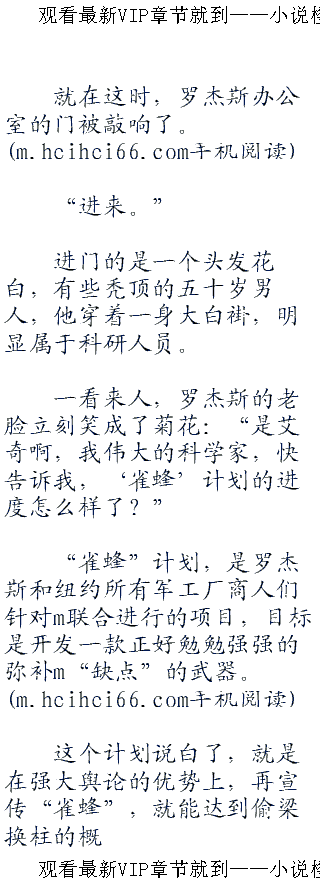 观看最新VIP章节就到——小说检
就在这时，罗杰斯办公
室的门被敲响了。
(m.hcihci66.com手机阅读)
“进来。”
进门的是一个头发花
白，有些秃顶的五十岁男
人，他穿着一身大白褂，明
显属于科研人员。
一看来人，罗杰斯的老
脸立刻笑成了菊花：“是艾
奇啊，我伟大的科学家，快
告诉我，‘雀蜂’计划的进
度怎么样了？”
“雀蜂”计划，是罗杰
斯和纽约所有军工厂商人们
针对m联合进行的项目，目标
是开发一款正好勉勉强强的
弥补m“缺点”的武器。
(m.hcihci66.com手机阅读)
这个计划说白了，就是
在强大舆论的优势上，再宣
传“雀蜂”，就能达到偷梁
换柱的概
观看最新VIP章节就到——小说检